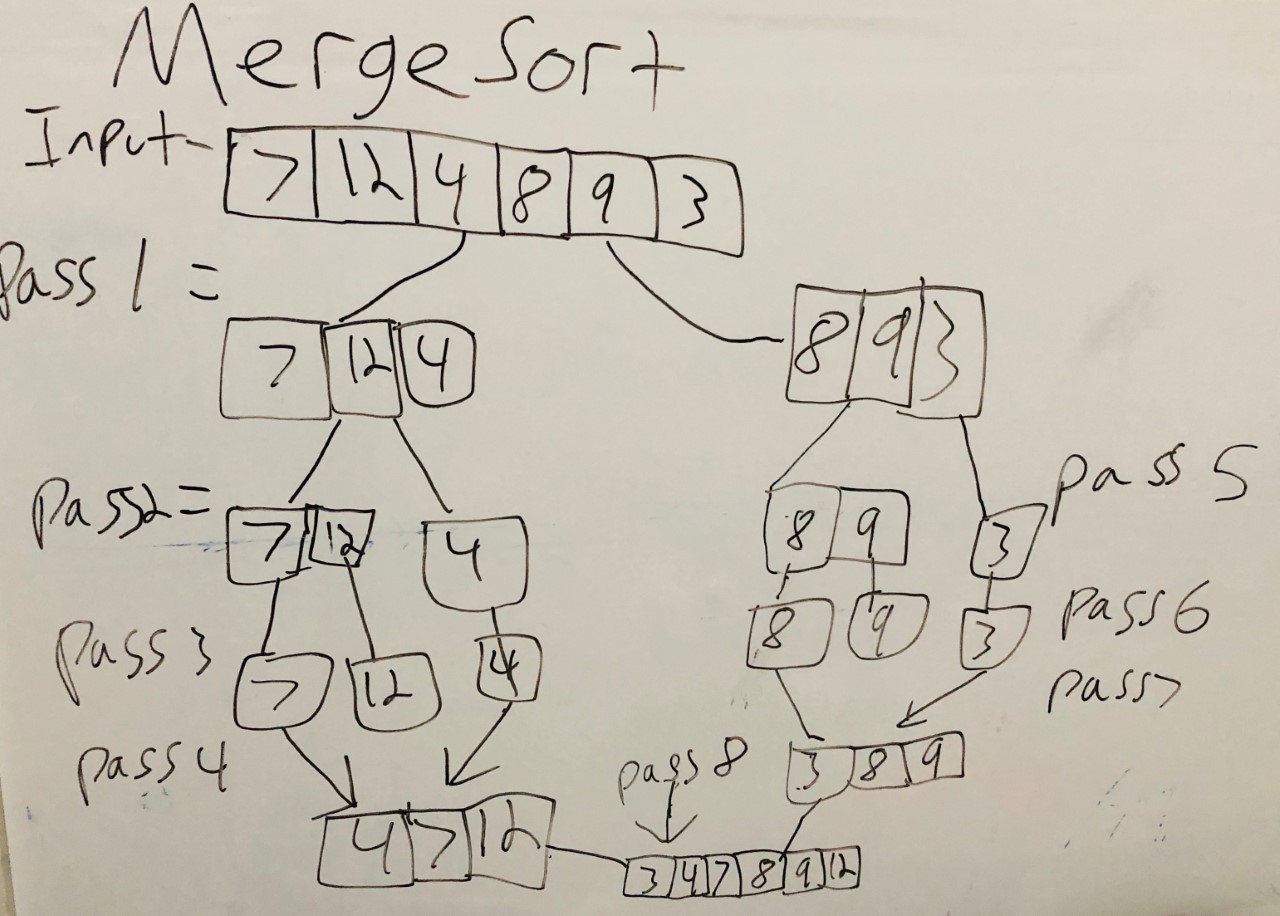 Merge Sort
Input-
7 12 4 8 9 3
Pass 1 =
7 12 4
8 9 3
Pass2 =
7 12
4
8 9
3
pass 5
pass 3
7
12
4
8
9
3
pass 6
pass 4
pass7
4 7 12
3 8 9
pass 8
3 4 7 8 9 12